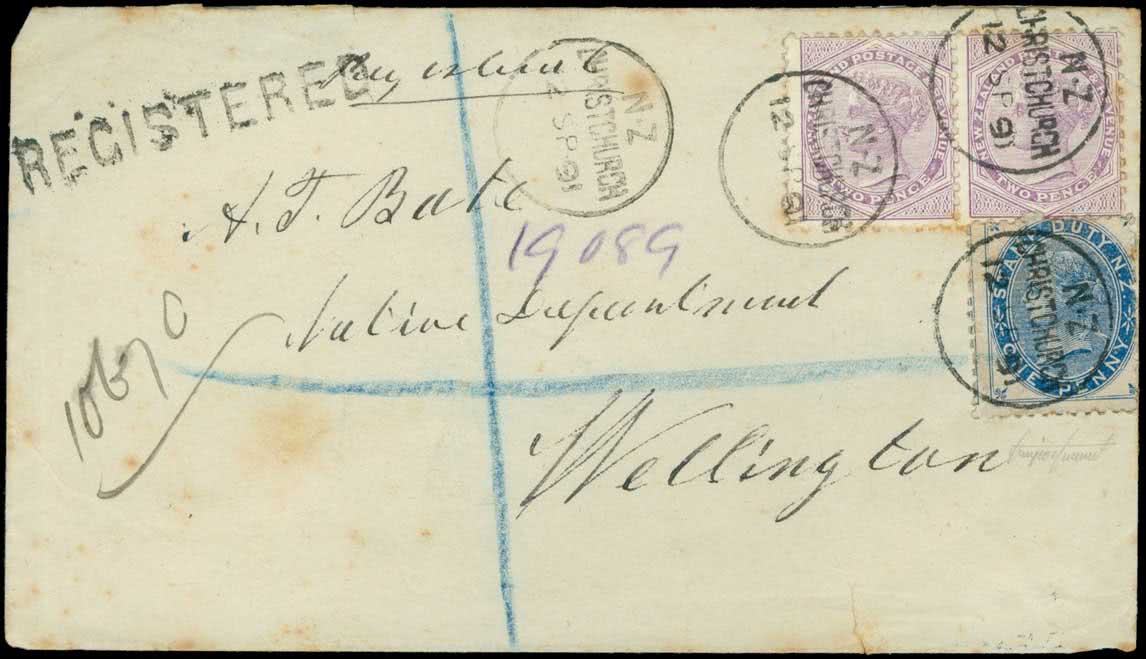 REGISTERED
Registered
A. T. Bate
Native Department
Wellington
19089
N·Z
CHRISTCHURCH
12 SP 91
N·Z
CHRISTCHURCH
12 SP 91
N·Z
CHRISTCHURCH
12 SP 91
N·Z
CHRISTCHURCH
12 91
POSTAGE & REVENUE
TWO PENCE
NEW ZEALAND REVENUE
TWO PENCE
STAMP DUTY N.Z.
ONE PENNY